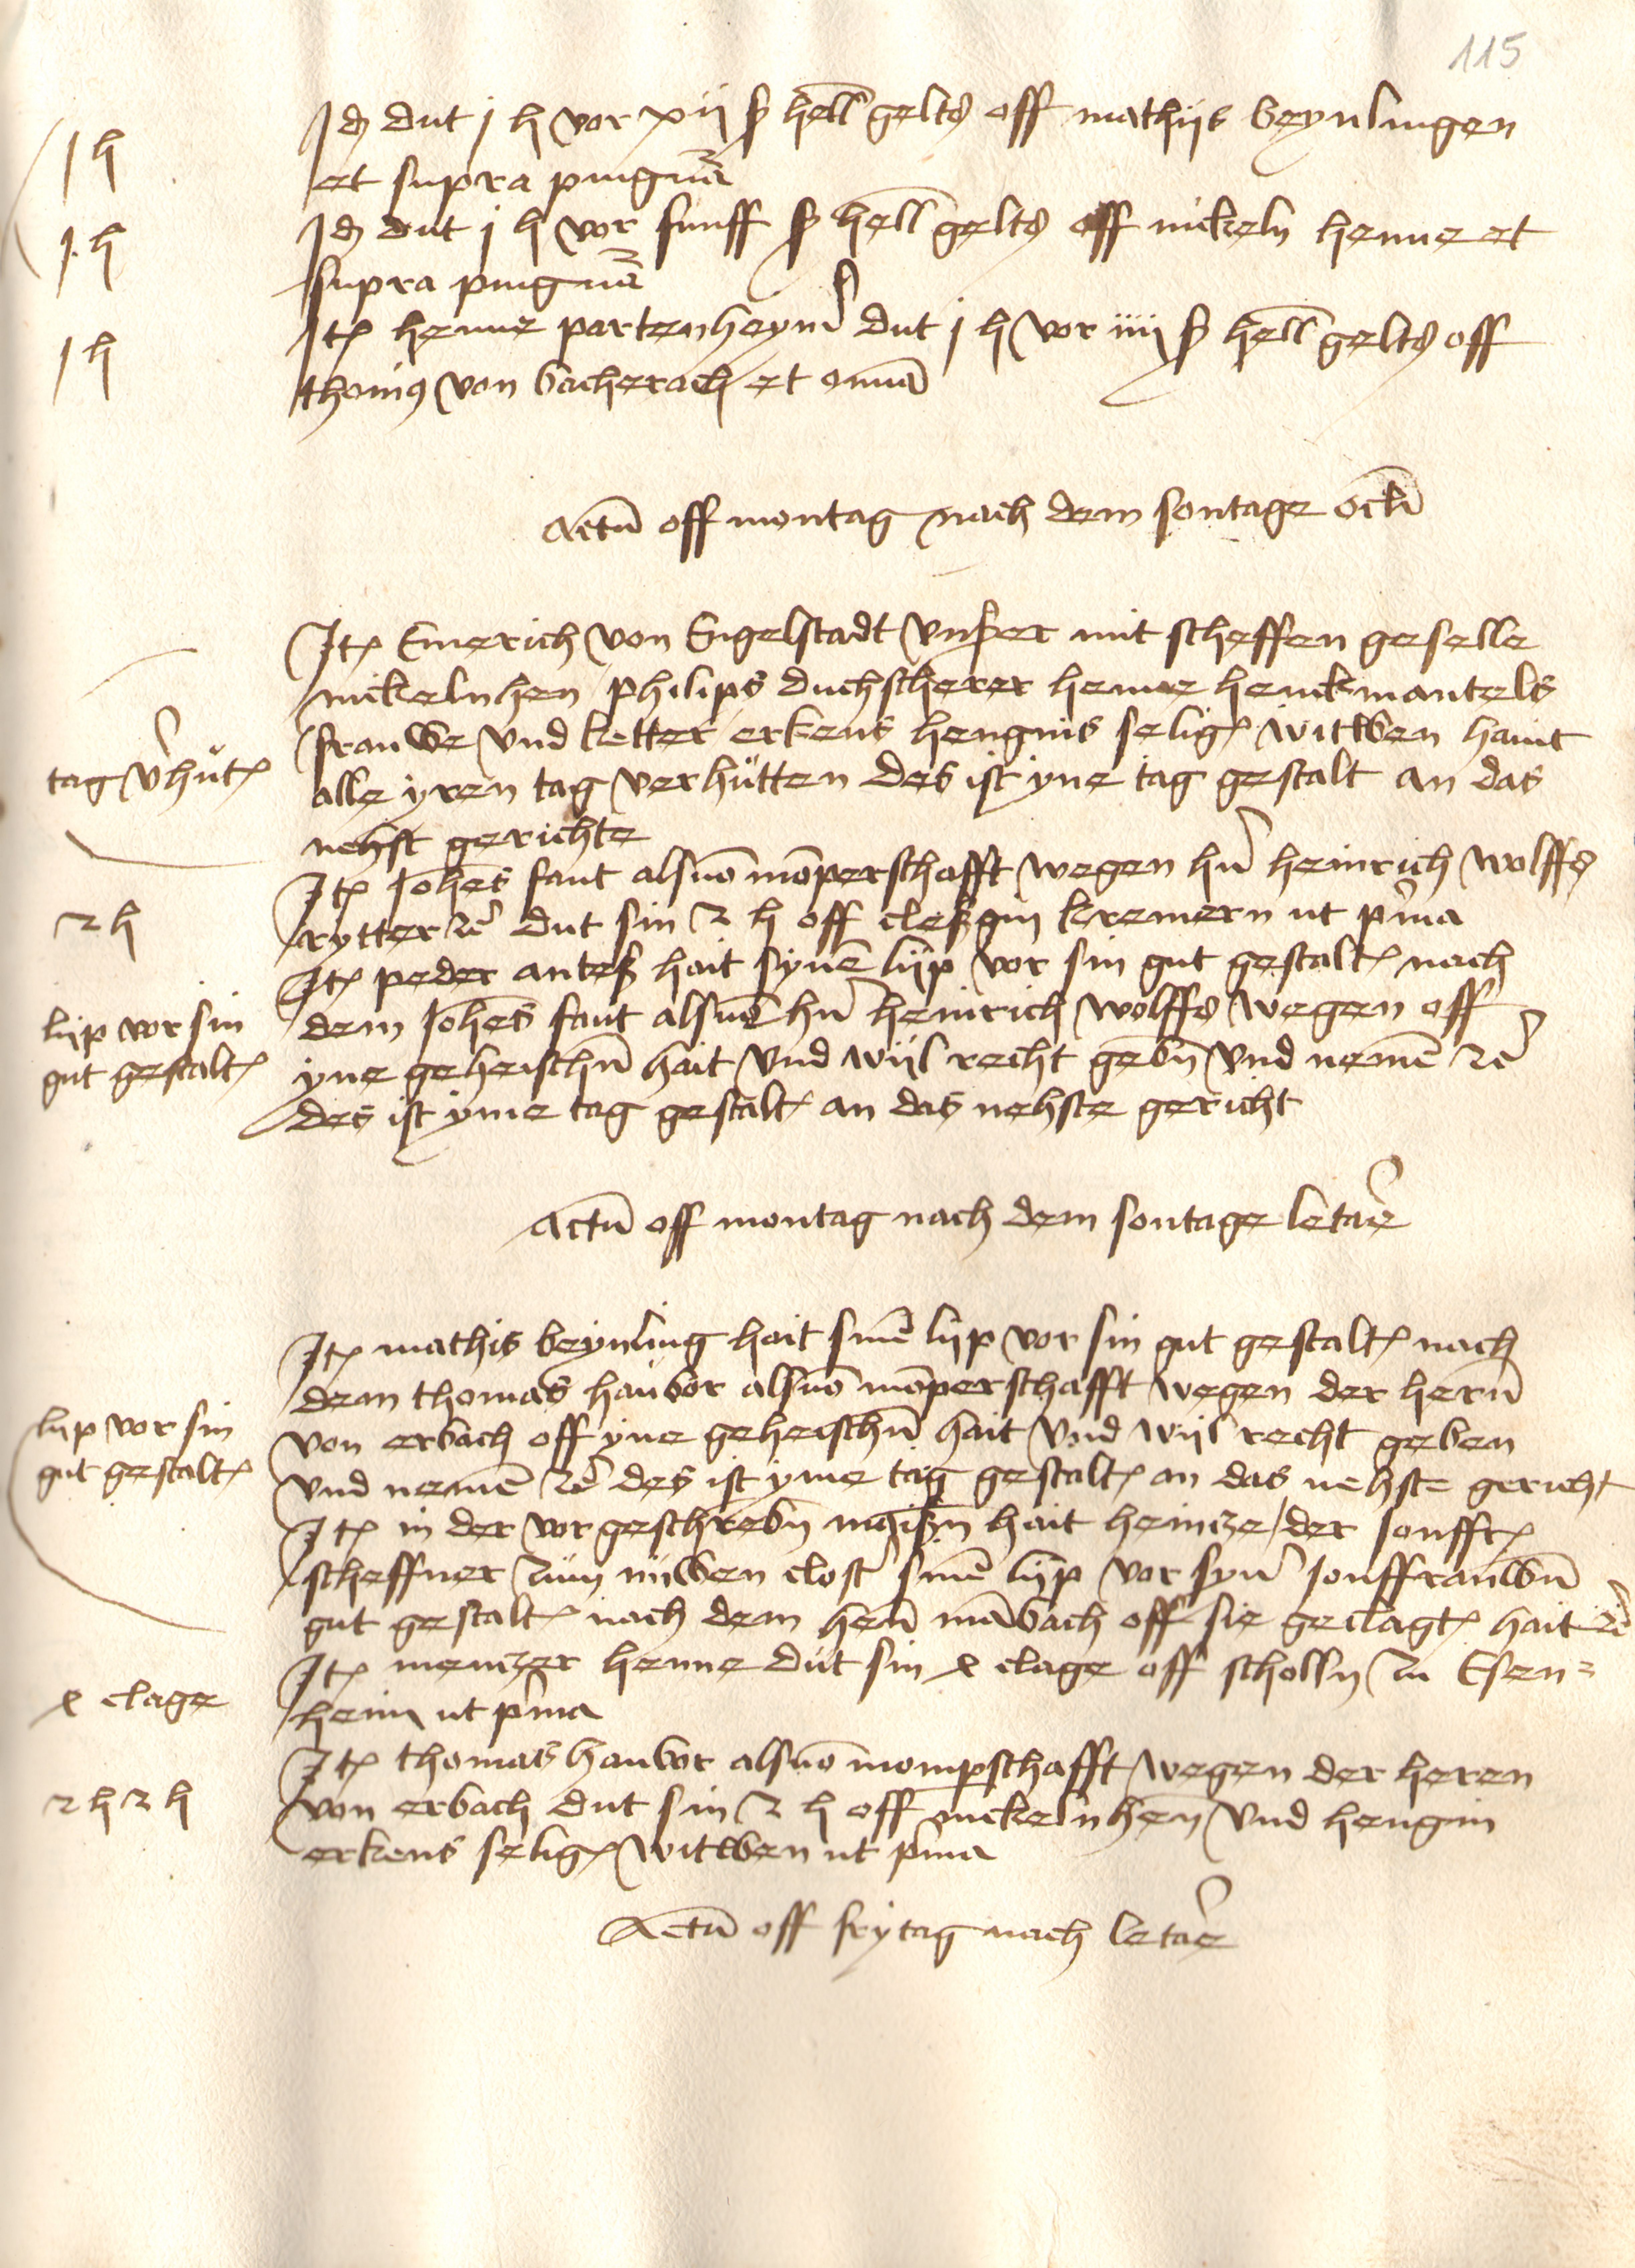 115
1 h
Jd dut j h vor xii ß hell gelts off mathijs beynlingen
et supra pingnā
1 h
Jd dut j h vor funff ß hell gelts off nickeln henne et
supra pingnā
1 h
Jt henne partenheym dut j h vor iiij ß hell gelts off
thomas von bacherach et omīa
Actū off montag nach dem sontage oculi
Jt Emerich von Engelstadt vnßer mit scheffen geselle
nickelnhen philips duchscherer henne henckmantels
frauwe vnd ketter erkens hengins selig witwen haint
tag vhut
alle yren tag verhutten des ist yne tag gestalt an das
nehst gerichte
Jt Johes faut alsuō mōperschafft wegen hn heinrich wolffs
2 h
rytter ꝛc dut sin 2 h off cleßgin kremern ut pma
Jt peder anteß hait synē lijp vor sin gut gestalt nach
lijp vor sin
gut gestalt
dem Johes faut alsuō hn heinrich wolffs wegen off
yne geheischn hait vnd wijl recht gebn vnd nemē ꝛc
des ist yme tag gestalt an das nehste gericht
Actū off montag nach dem sontage letare
Jt mathis beynling hait sinē lijp vor sin gut gestalt nach
dem thomas haubor alsuō mōperschafft wegen der hern
lijp vor sin
gut gestalt
von erbach off yne geheischn hait vnd wijl recht geben
vnd nemē ꝛc des ist yme tag gestalt an das nehste gericht
Jt in der vorgeschrebn maißn hait heincze der jonffr
scheffner zum nuwen clost sinē lijp vor syn jonffrauwn
gut gestalt nach dem hen mābach off sie geclagt hait ꝛc
x clage
Jt menczer henne dut sin x clage off scholln zu Esen=
heim ut pma
Jt thomas haubor alsuō momperschafft wegen der heren
2 h 2 h
von erbach dut sin 2 h off nickelnhen vnd hengin
erkens selig witwen ut pma
Actū off frytag nach letare